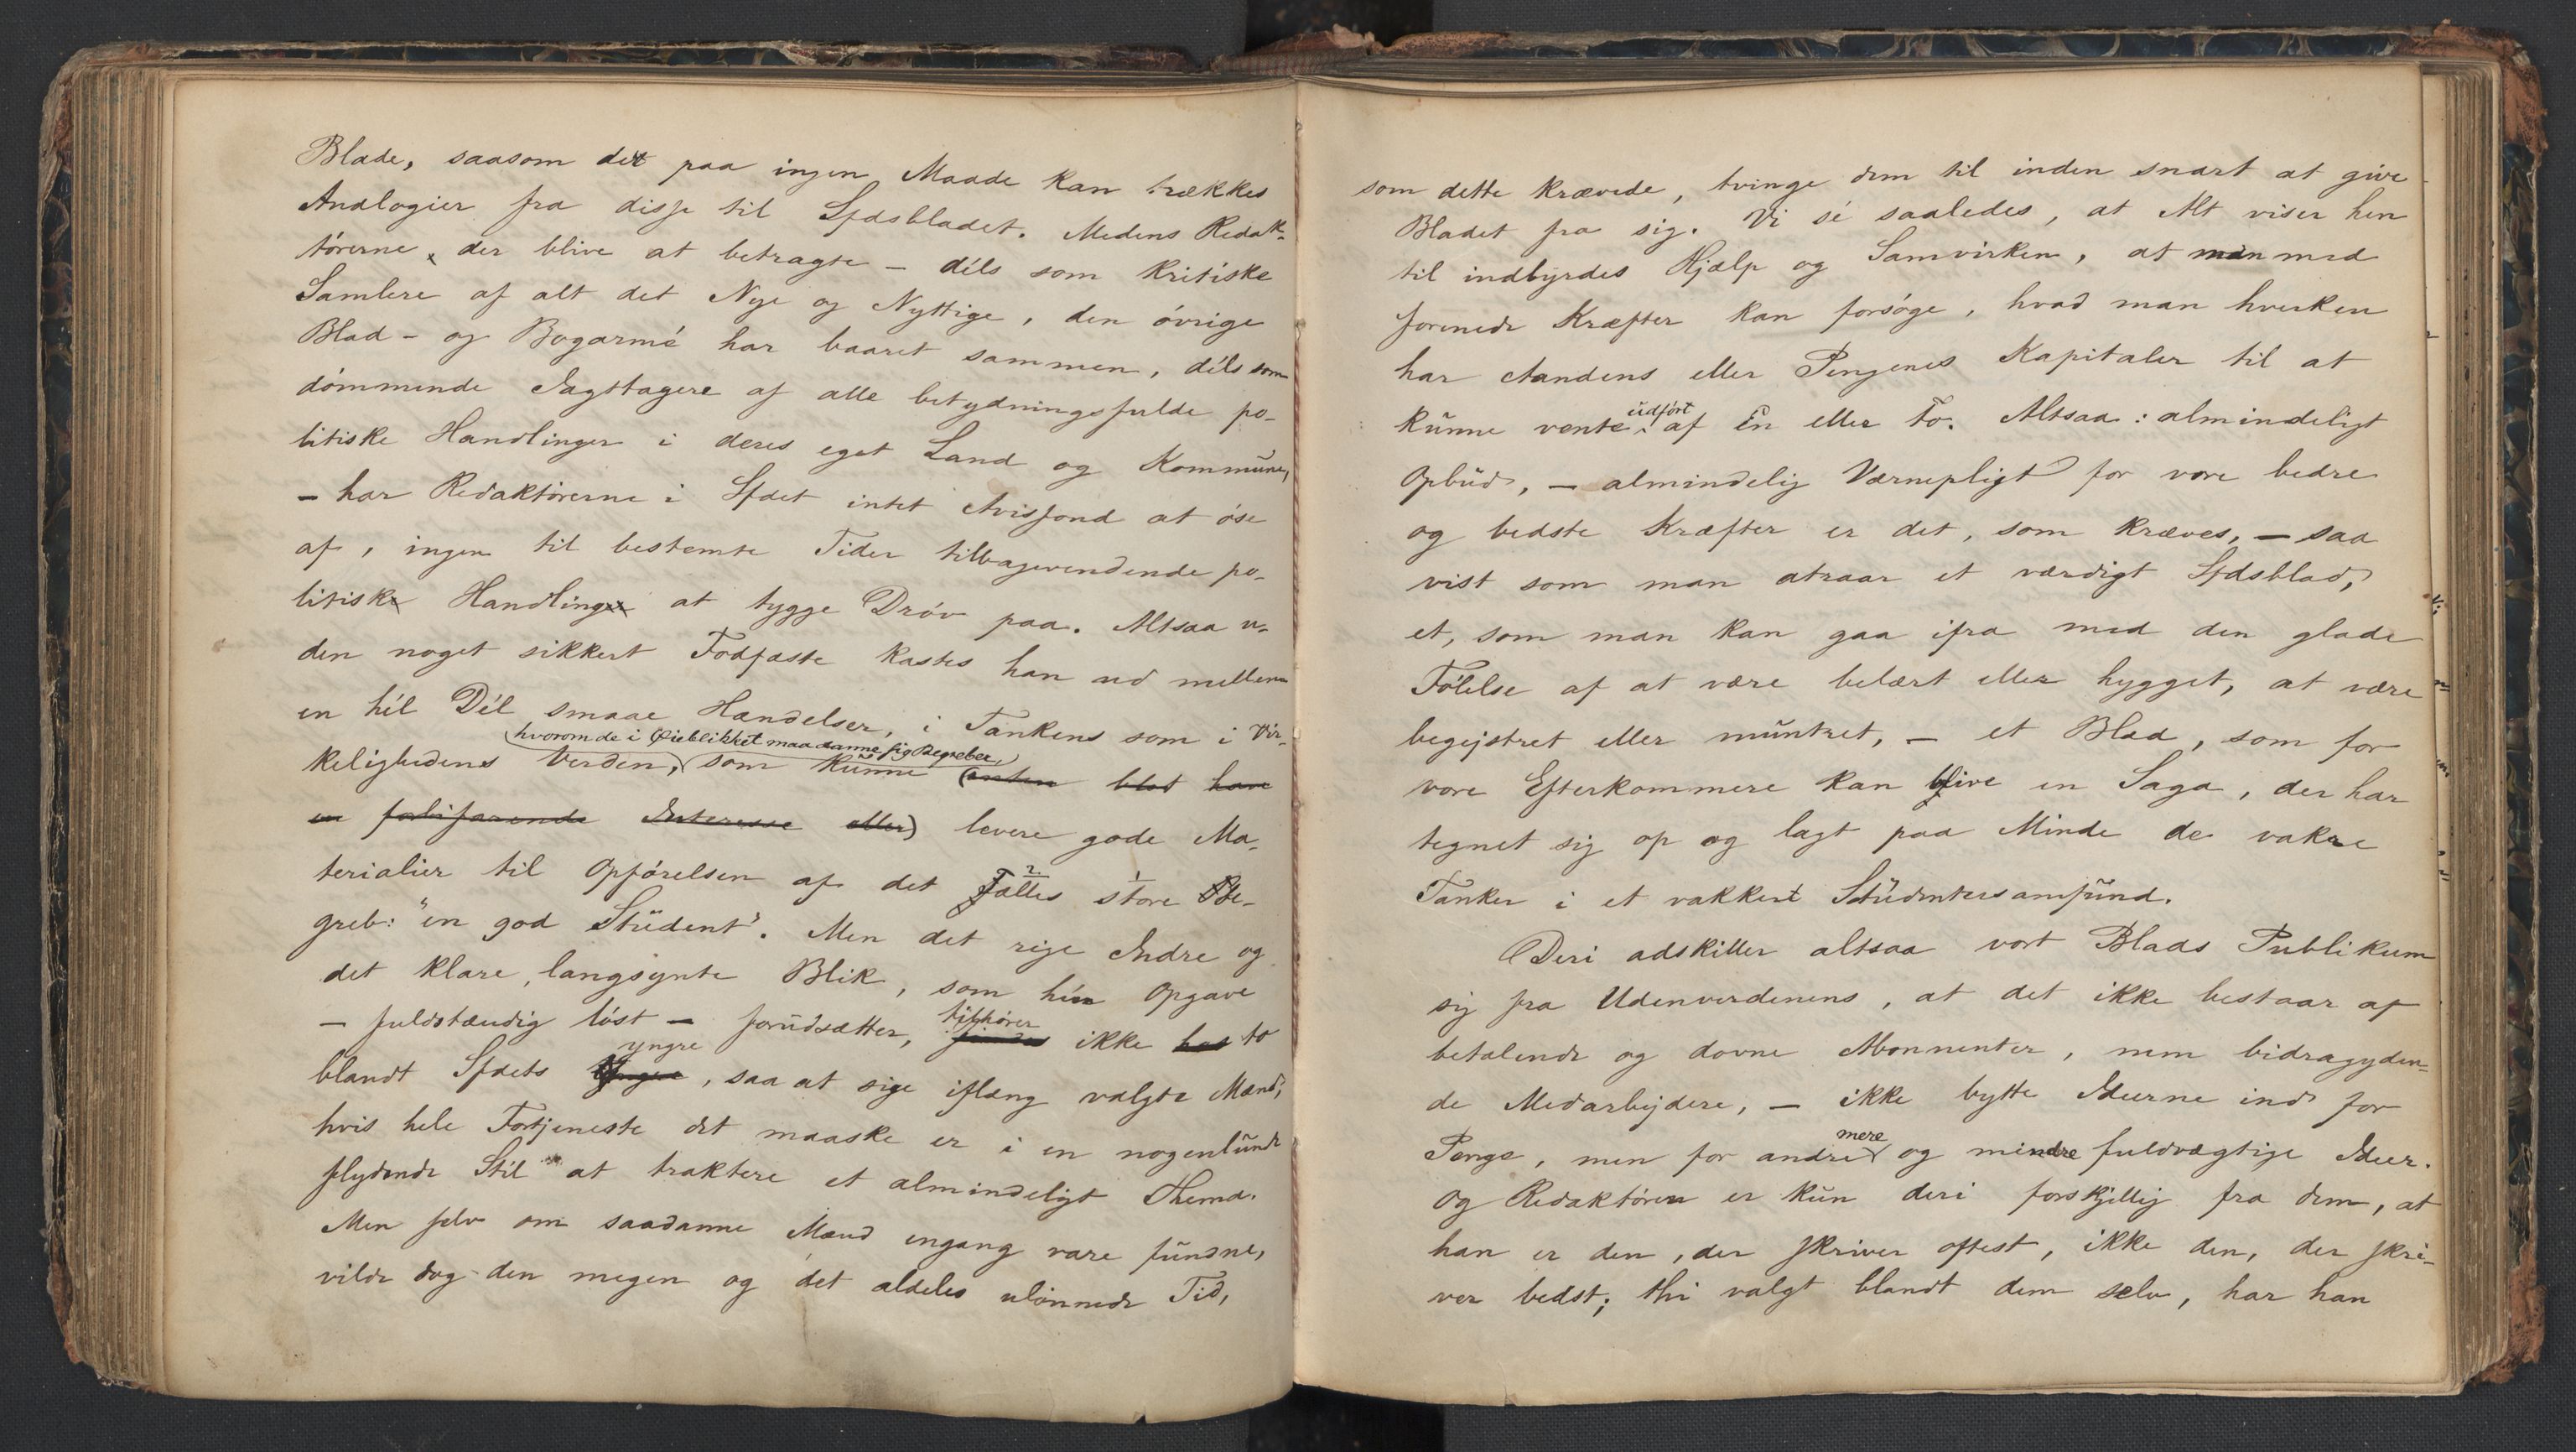 Blade, saasom det paa ingen Maade kan trækkes
Analogier fra disse til Sfdsbladet. Medens Redak-
törerne, der blive at betragte – déls som kritiske
Samlere af alt det Nye og Nyttige, den övrige
Blad- og Bogarmé har baaret sammen, déls som
dömmende Iagttagere af alle betydningsfulde po-
litiske Handlinger i deres eget Land og Kommune,
– har Redaktörerne i Sfdet intet Avisfond at öse
af, ingen til bestemte Tider tilbagevendende po-
litisk Handling at tygge Dröv paa. Altsaa u-
den noget sikkert Fodfæste kastes han ud mellem
en hél Dél smaae Hændelser, i Tankens som i Vir-
hvorom de i Øieblikket maa danne sig Begreber,
kelighedens Verden, som kunne (enten blot have
en forbifarende Interesse eller) levere gode Ma-
terialier til Opförelsen af det Fælles store Be-
greb: "en god Student". Men det rige Indre og
det klare, langsynte Blik, som hin Opgave
– fuldstændig löst – forudsætter, tilhörer findes ikke hos to
blandt Sfdets yngre Yngre, saa at sige iflæng valgte Mænd,
hvis hele Fortjeneste det maaske er i en nogenlunde
flydende Stil at traktere et almindeligt Thema.
Men selv om saadanne Mænd engang vare fundne,
vilde dog den megen og det aldeles ulönnede Tid,
som dette krævede, tvinge dem til inden snart at give
Bladet fra sig. Vi sé saaledes, at Alt viser hen
til indbyrdes Hjælp og Samvirken, at man med
forenede Kræfter kan forsöge, hvad man hverken
har Aandens eller Pengenes Kapitaler til at
kunne vente udfört af én eller to. Altsaa: almindeligt
Opbud, – almindelig Værnepligt for vore bedre
og bedste Kræfter er det, som kræves, – saa
vist som man atraar et værdigt Sfdsblad,
et, som man kan gaa ifra med den glade
Fölelse af at være belært eller hygget, at være
begejstret eller muntret, – et Blad, som for
vore Efterkommere kan blive en Saga, der har
tegnet sig op og lagt paa Minde de vakre
Tanker i et vakkert Studentersamfund.
Deri adskiller altsaa vort Blads Publikum
sig fra Udenverdenens, at det ikke bestaar af
betalende og dovne Abonnenter, men bidragyden-
de Medarbejdere, – ikke bytte Ideerne ind for
Penge, men for andre mere og mindre fuldvægtige Ideer.
Og Redaktören er kun deri forskjellig fra dem, at
han er den, der skriver oftest, ikke den, der skri-
ver bedst; thi valgt blandt dem selv, har han